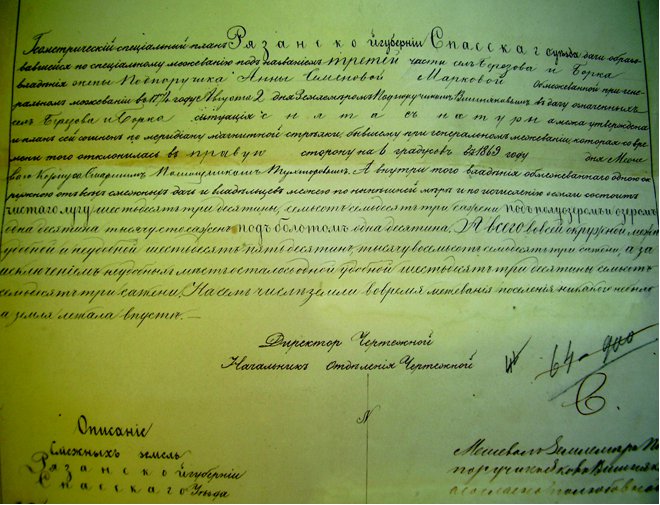 Геометрическій спеціальный планъ Рязанской губерніи Спасскаго уѣзда дачи образо
вавшейся по спеціальному межеванію подъ названіемъ третей части селъ Ерозова и Борка
владѣнія жены Подпоручика Анны Семеновой Марковой Обмежеванной при гене
ральномъ межеваніи въ году Августа 2 дня Землемѣромъ Подпоручикомъ дачу означенныхъ
селъ Ерозова и Борка ситуація снята съ натуры а межа утверждена
и планъ сей сочиненъ по меридіану магнитной стрѣлки, бывшему при генеральномъ межеваніи, которая со вре
мени того отклонилась въ правую сторону на 6 градусовъ въ 1869 году дня Меже
ваго Корпуса Старшимъ Помощникомъ А внутри того владѣнія обмежеваннаго одною ок
ружною отъ всѣхъ смежныхъ дачъ и владѣльцевъ межею по нынѣшней мѣрѣ и по исчисленію земли состоитъ
чистаго лугу шестьдесятъ три десятины, семьсотъ семьдесятъ три сажени подъ полуозеромъ и озеромъ
одна десятина тысячу сто сажень подъ болотомъ одна десятина, А всего во всей окружной межѣ
удобной и неудобной шестьдесятъ пять десятинъ, тысячу восемьсотъ семьдесятъ три сажени, а за
исключеніемъ неудобныхъ мѣстъ осталось одной удобной шестьдесятъ три десятины семьсотъ
семьдесятъ три сажени, На семъ числѣ земли во время межеванія поселенія никакого небыло
а земля лежала впустѣ. —
Директоръ Чертежной
Начальникъ Отдѣленія Чертежной
64-900
С.
N
Описаніе
Смежныхъ земель
Рязанской губерніи
Спасскаго Уѣзда
Межевалъ Землемѣръ По
поручикъ